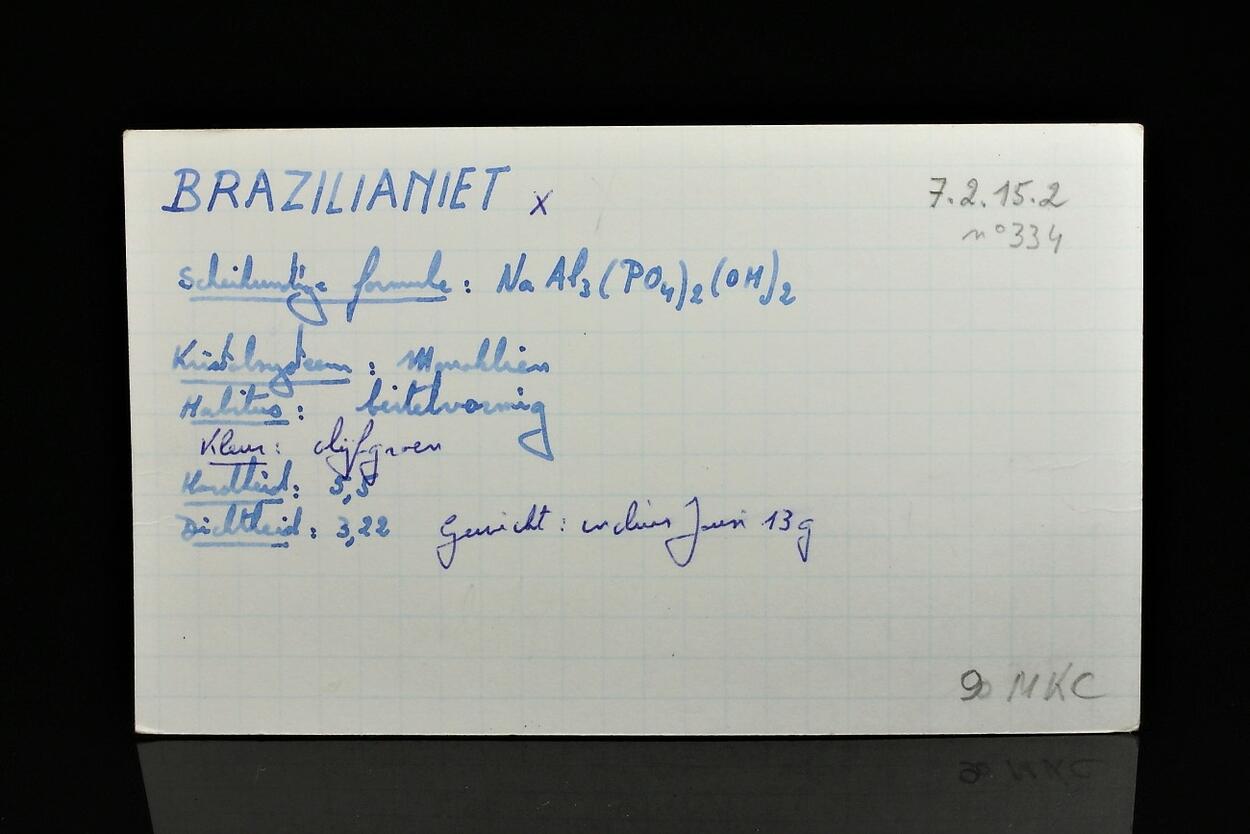 BRAZILIANIET x
7.2.15.2
n°334
Scheikundige formule : NaAl3(PO4)2(OH)2
Kristalsysteem : Monoklien
Habitus : beitelvormig
Kleur : olijfgroen
Hardheid : 5,5
Dichtheid : 3,22 Gewicht : 13g
MKC